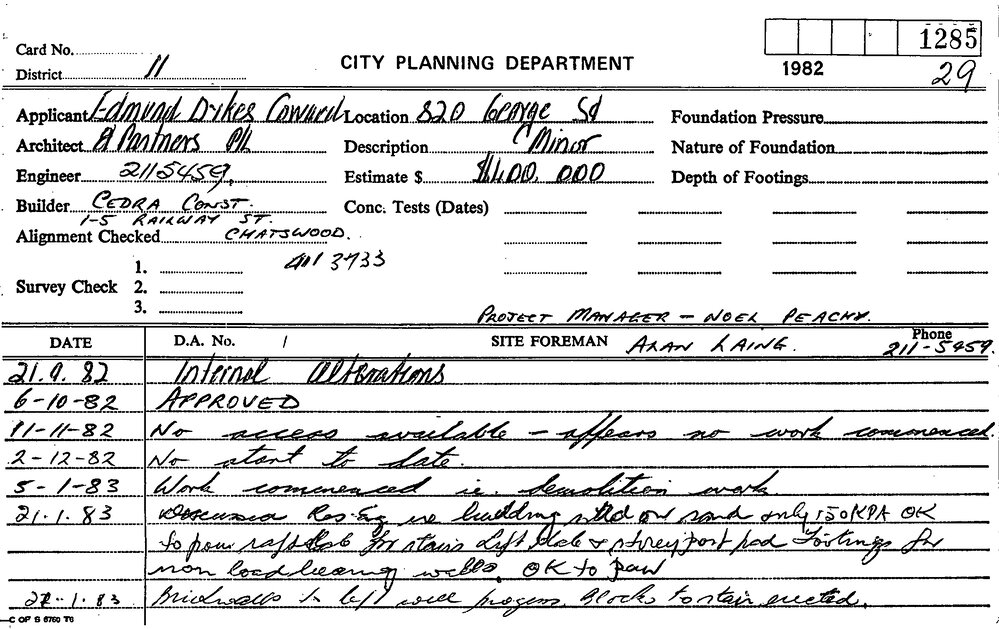 1285
Card No.
CITY PLANNING DEPARTMENT
1982
29
District 11
Applicant Edmund Dykes Coward Location 820 George St Foundation Pressure
Architect & Partners P/L Description Minor Nature of Foundation
Engineer 2115459. Estimate $ 000 Depth of Footings
Builder CEDRA CONST. Conc. Tests (Dates)
1-5 RAILWAY ST.
Alignment Checked CHATSWOOD.
1. 411 3733
Survey Check 2.
3.
PROJECT MANAGER - NOEL PEACHY.
DATE D.A. No. SITE FOREMAN ALAN LAING. Phone
211-5459.
21.9.82 Internal alterations
6-10-82 APPROVED
11-11-82 No access available - appears no work commenced.
2-12-82 No start to date.
5-1-83 Work commenced ie. demolition work.
21.1.83 Discussed Res. Eng. building on sand only 150 KPA OK
to pour raft slab for stairs Lift slab & post pad Footings for
non load bearing walls. OK to pour
1.83 Brickwalls to left well progress. Blocks to stair erected.
C OF S 6760 T6